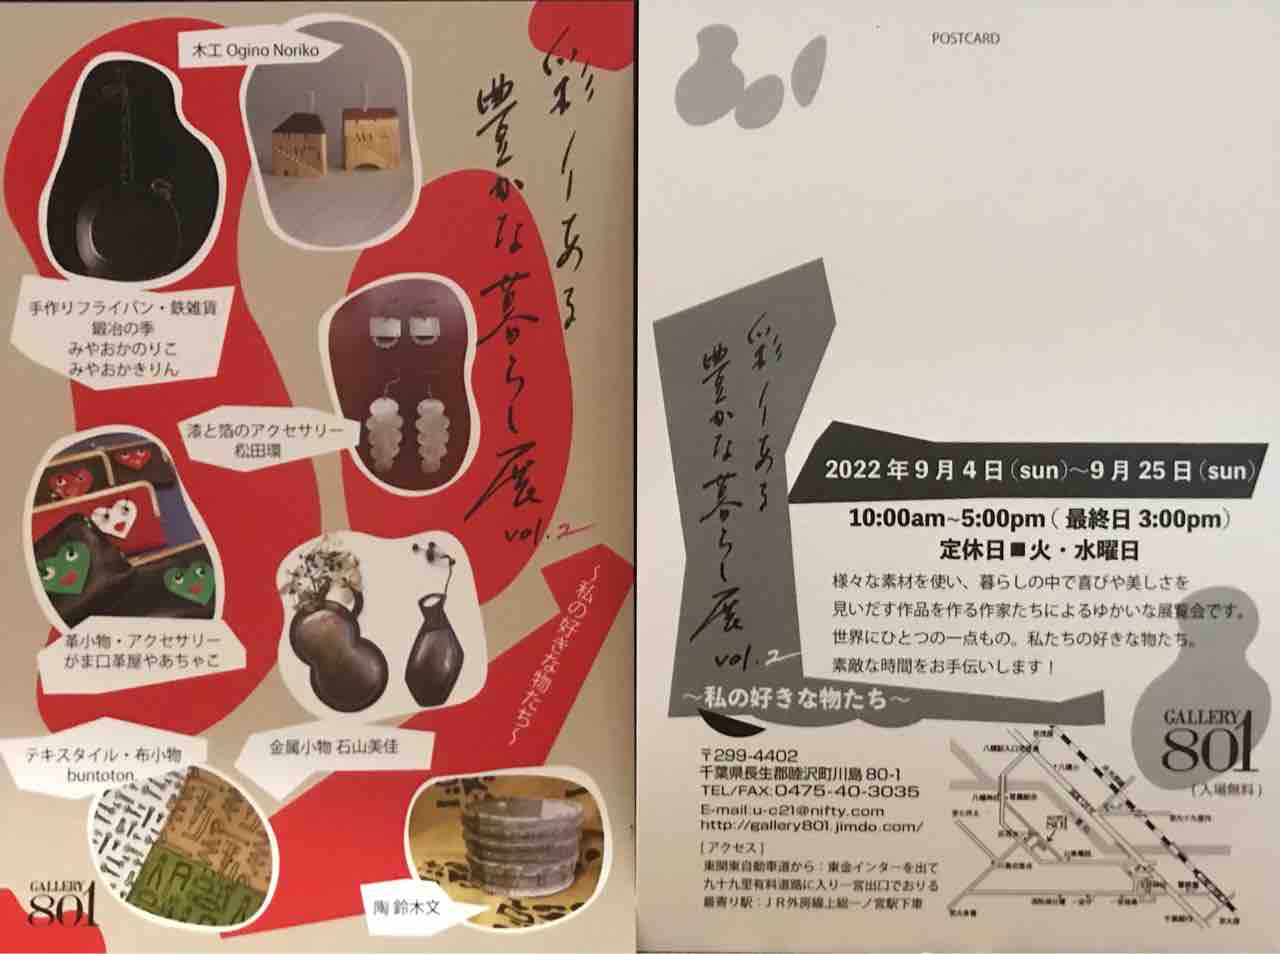 木工 Ogino Noriko
彩りある
豊かな暮らし展
vol.2
手作りフライパン・鉄雑貨
鍛冶の季
みやおかのりこ
みやおかきりん
漆と箔のアクセサリー
松田環
革小物・アクセサリー
がま口革屋やあちゃこ
〜私の好きな物たち〜
金属小物 石山美佳
テキスタイル・布小物
buntoton.
陶 鈴木文
GALLERY
801
POSTCARD
彩りある
豊かな暮らし展
vol.2
〜私の好きな物たち〜
2022年9月4日(sun)〜9月25日(sun)
10:00am~5:00pm( 最終日 3:00pm)
定休日■火・水曜日
様々な素材を使い、暮らしの中で喜びや美しさを
見いだす作品を作る作家たちによるゆかいな展覧会です。
世界にひとつの一点もの。私たちの好きな物たち。
素敵な時間をお手伝いします！
GALLERY
801
[入場無料]
〒299-4402
千葉県長生郡睦沢町川島80-1
TEL/FAX:0475-40-3035
E-mail:u-c21@nifty.com
http://gallery801.jimdo.com/
[アクセス]
東関東自動車道から：東金インターを出て
九十九里有料道路に入り一宮出口でおりる
最寄り駅：JR外房線上総一ノ宮駅下車